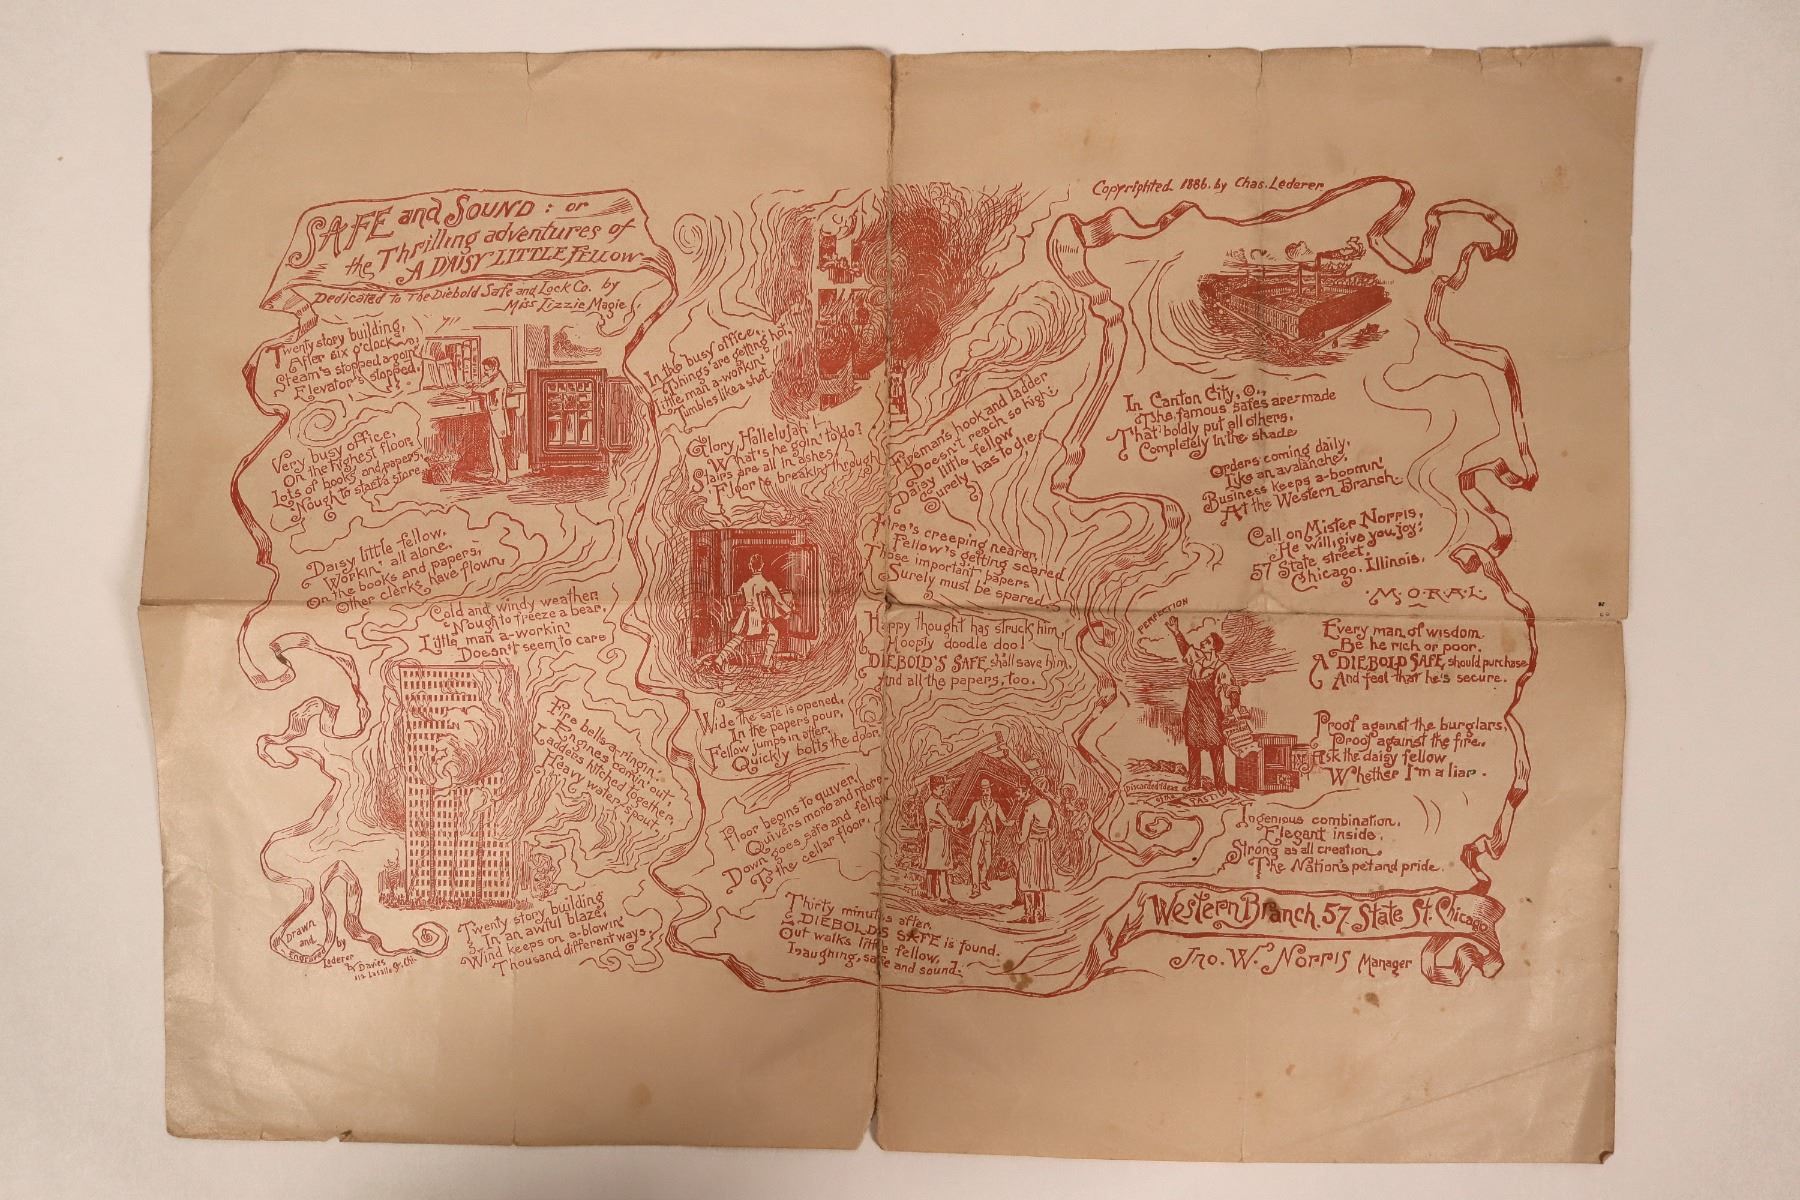 SAFE and SOUND : or
the Thrilling adventures of
A DAISY LITTLE FELLOW
Dedicated to The Diebold Safe and Lock Co. by
Miss Lizzie Magie
Twenty story building,
After six o'clock
Steam's stopped a-goin'
Elevator's stopped.
Very busy office,
On the highest floor,
Lots of books and papers,
Nough to start a store
Daisy little fellow,
Workin' all alone,
On the books and papers,
Other clerks have flown,
Cold and windy weather,
Nough to freeze a bear,
Little man a-workin'
Doesn't seem to care
Fire bells a-ringin',
Engines comin' out,
Ladders hitched together,
Heavy water-spout,
Twenty story building
In an awful blaze,
Wind keeps on a-blowin'
Thousand different ways.
Drawn
and
Engraved
by
Lederer
& Davies
112 Lasalle St. Chi.
In the busy office,
Things are getting hot,
Little man a-workin'
Tumbles like a shot.
Glory, Hallelujah!
What's he goin' to do?
Stairs are all in ashes
Floor is breaking through
Fireman's hook and ladder
Doesn't reach so high;
Daisy little fellow
Surely has to die,
Fire's creeping nearer,
Fellow's getting scared
Those important papers
Surely must be spared.
Happy thought has struck him,
Hooply doodle doo!
DIEBOLD'S SAFE shall save him,
And all the papers, too.
Wide the safe is opened,
In the papers pour,
Fellow jumps in after,
Quickly bolts the door.
Floor begins to quiver,
Quivers more and more
Down goes safe and fellow
To the cellar floor.
Thirty minutes after,
DIEBOLD'S SAFE is found.
Out walks little fellow,
Laughing, safe and sound.
Copyrighted 1886. by Chas. Lederer
In Canton City, O.,
The famous safes are made
That boldly put all others,
Completely in the shade
Orders coming daily,
Like an avalanche,
Business keeps a-boomin'
At the Western Branch.
Call on Mister Norris,
He will give you joy;
57 State street,
Chicago, Illinois.
MORAL
PERFECTION
Discarded Ideas
PAST
Every man of wisdom.
Be he rich or poor.
A DIEBOLD SAFE should purchase
And feel that he's secure.
Proof against the burglars,
Proof against the fire,
Ask the daisy fellow
Whether I'm a liar.
Ingenious combination,
Elegant inside,
Strong as all creation
The Nation's pet and pride.
Western Branch. 57 State St. Chicago
Jno. W. Norris Manager